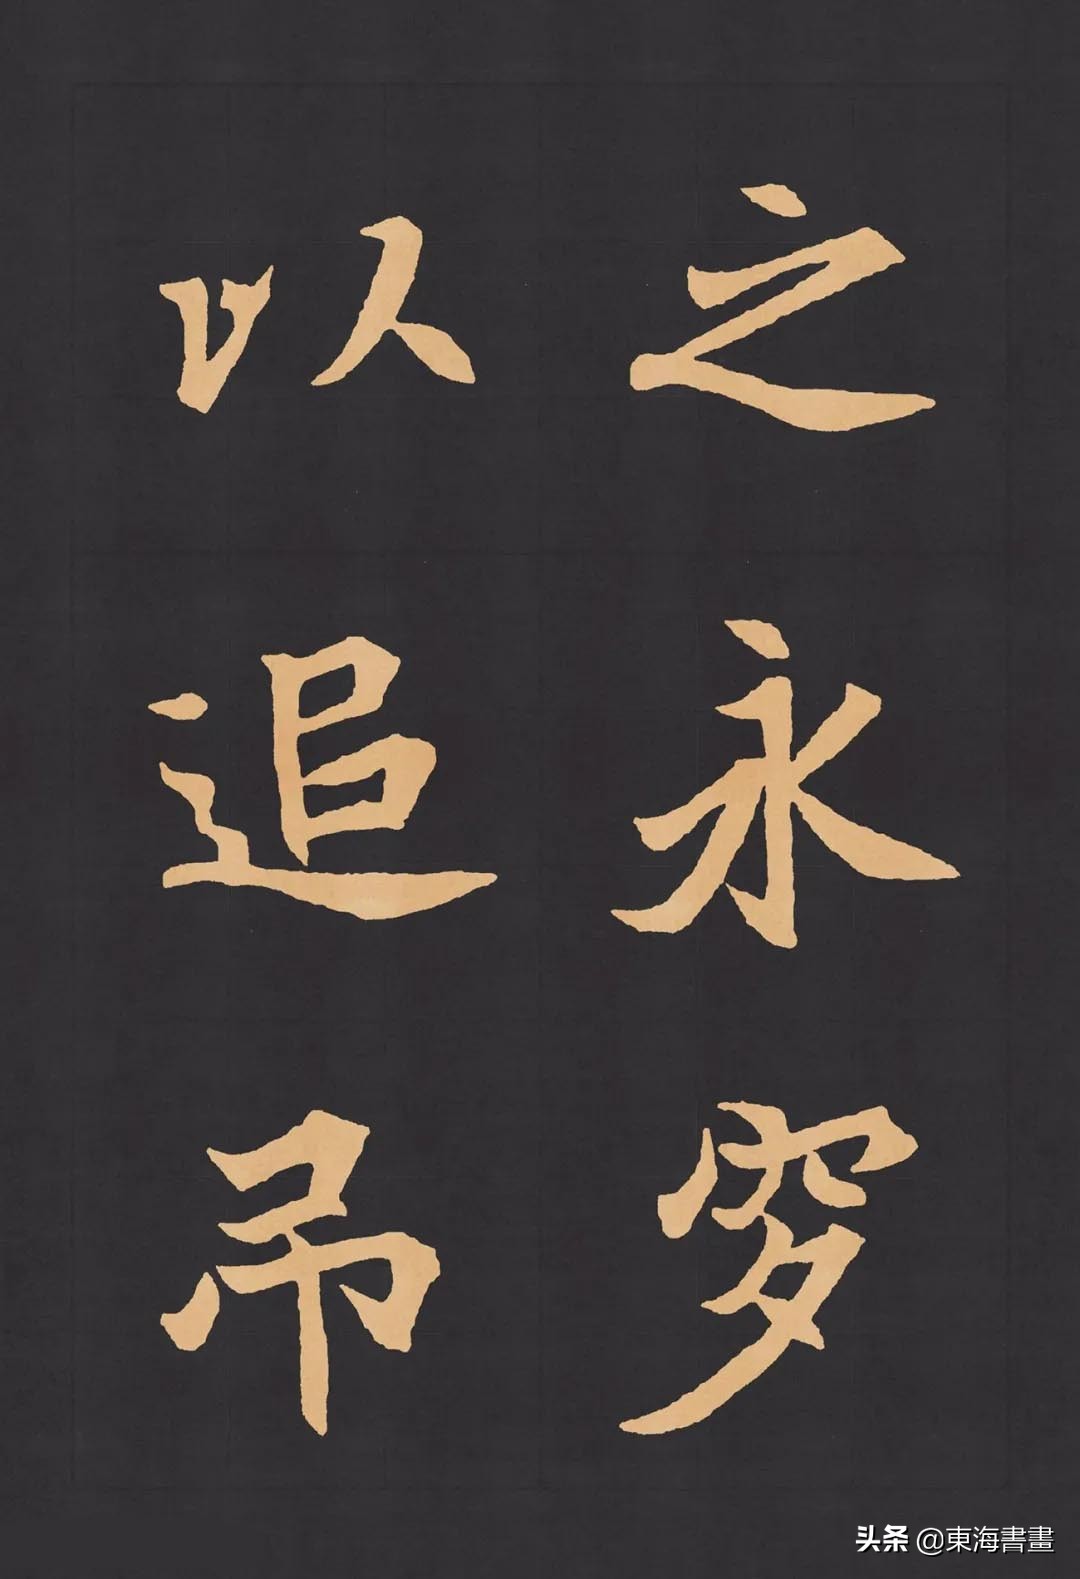 之永穸
以追吊
头条 @東海書畫